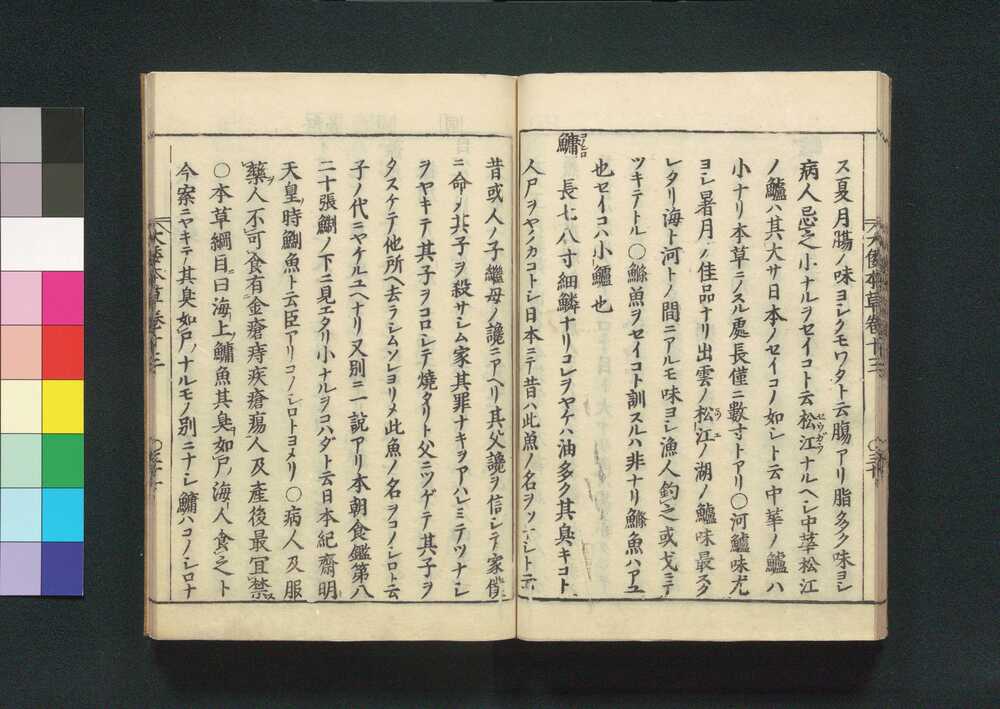 ス夏月腸ノ味ヨシクモワタト云腸アリ脂多ク味ヨシ
病人忌之小ナルヲセイコト云松江ナルヘシ中華松江
ノ鱸ハ其大サ日本ノセイコノ如シト云中華ノ鱸ハ
小ナリ本草ニノスル處長僅ニ數寸トアリ〇河鱸味尤
ヨシ暑月ノ佳品ナリ出雲ノ松江ノ湖ノ鱸味最スグ
レタリ海ト河トノ間ニアルモ味ヨシ漁人釣之或戈ニテ
ツキテトル〇鰷魚ヲセイコト訓スルハ非ナリ鰷魚ハアユ
也セイコハ小鱸也
鱅 長七八寸細鱗ナリコレヲヤケハ油多ク其臭キコト
人尸ヲヤクカコトシ日本ニテ昔ハ此魚ノ名ヲツナシト云
昔或人ノ子繼母ノ讒ニアヘリ其父讒ヲ信シテ家僮
ニ命〆其子ヲ殺サシム家其罪ナキヲアハレミテツナシ
ヲヤキテ其子ヲコロシテ燒タリト父ニツゲテ其子ヲ
タスケテ他所ヘ去ラシムソレヨリ〆此魚ノ名ヲコノシロト云
子ノ代ニヤケルユヘナリ又別ニ一說アリ本朝食鑑第八
二十張鯯ノ下ニ見エタリ小ナルヲコハダト云日本紀齋明
天皇ノ時鯯魚ト云臣アリコノシロトヨメリ〇病人及服
藥人不可食有金瘡痔疾瘡瘍人及產後最宜禁
〇本草綱目曰海上鱅魚其臭如尸海人食之ト
今案ニヤキテ其臭如尸ナルモノ別ニナシ鱅ハコノシロナ